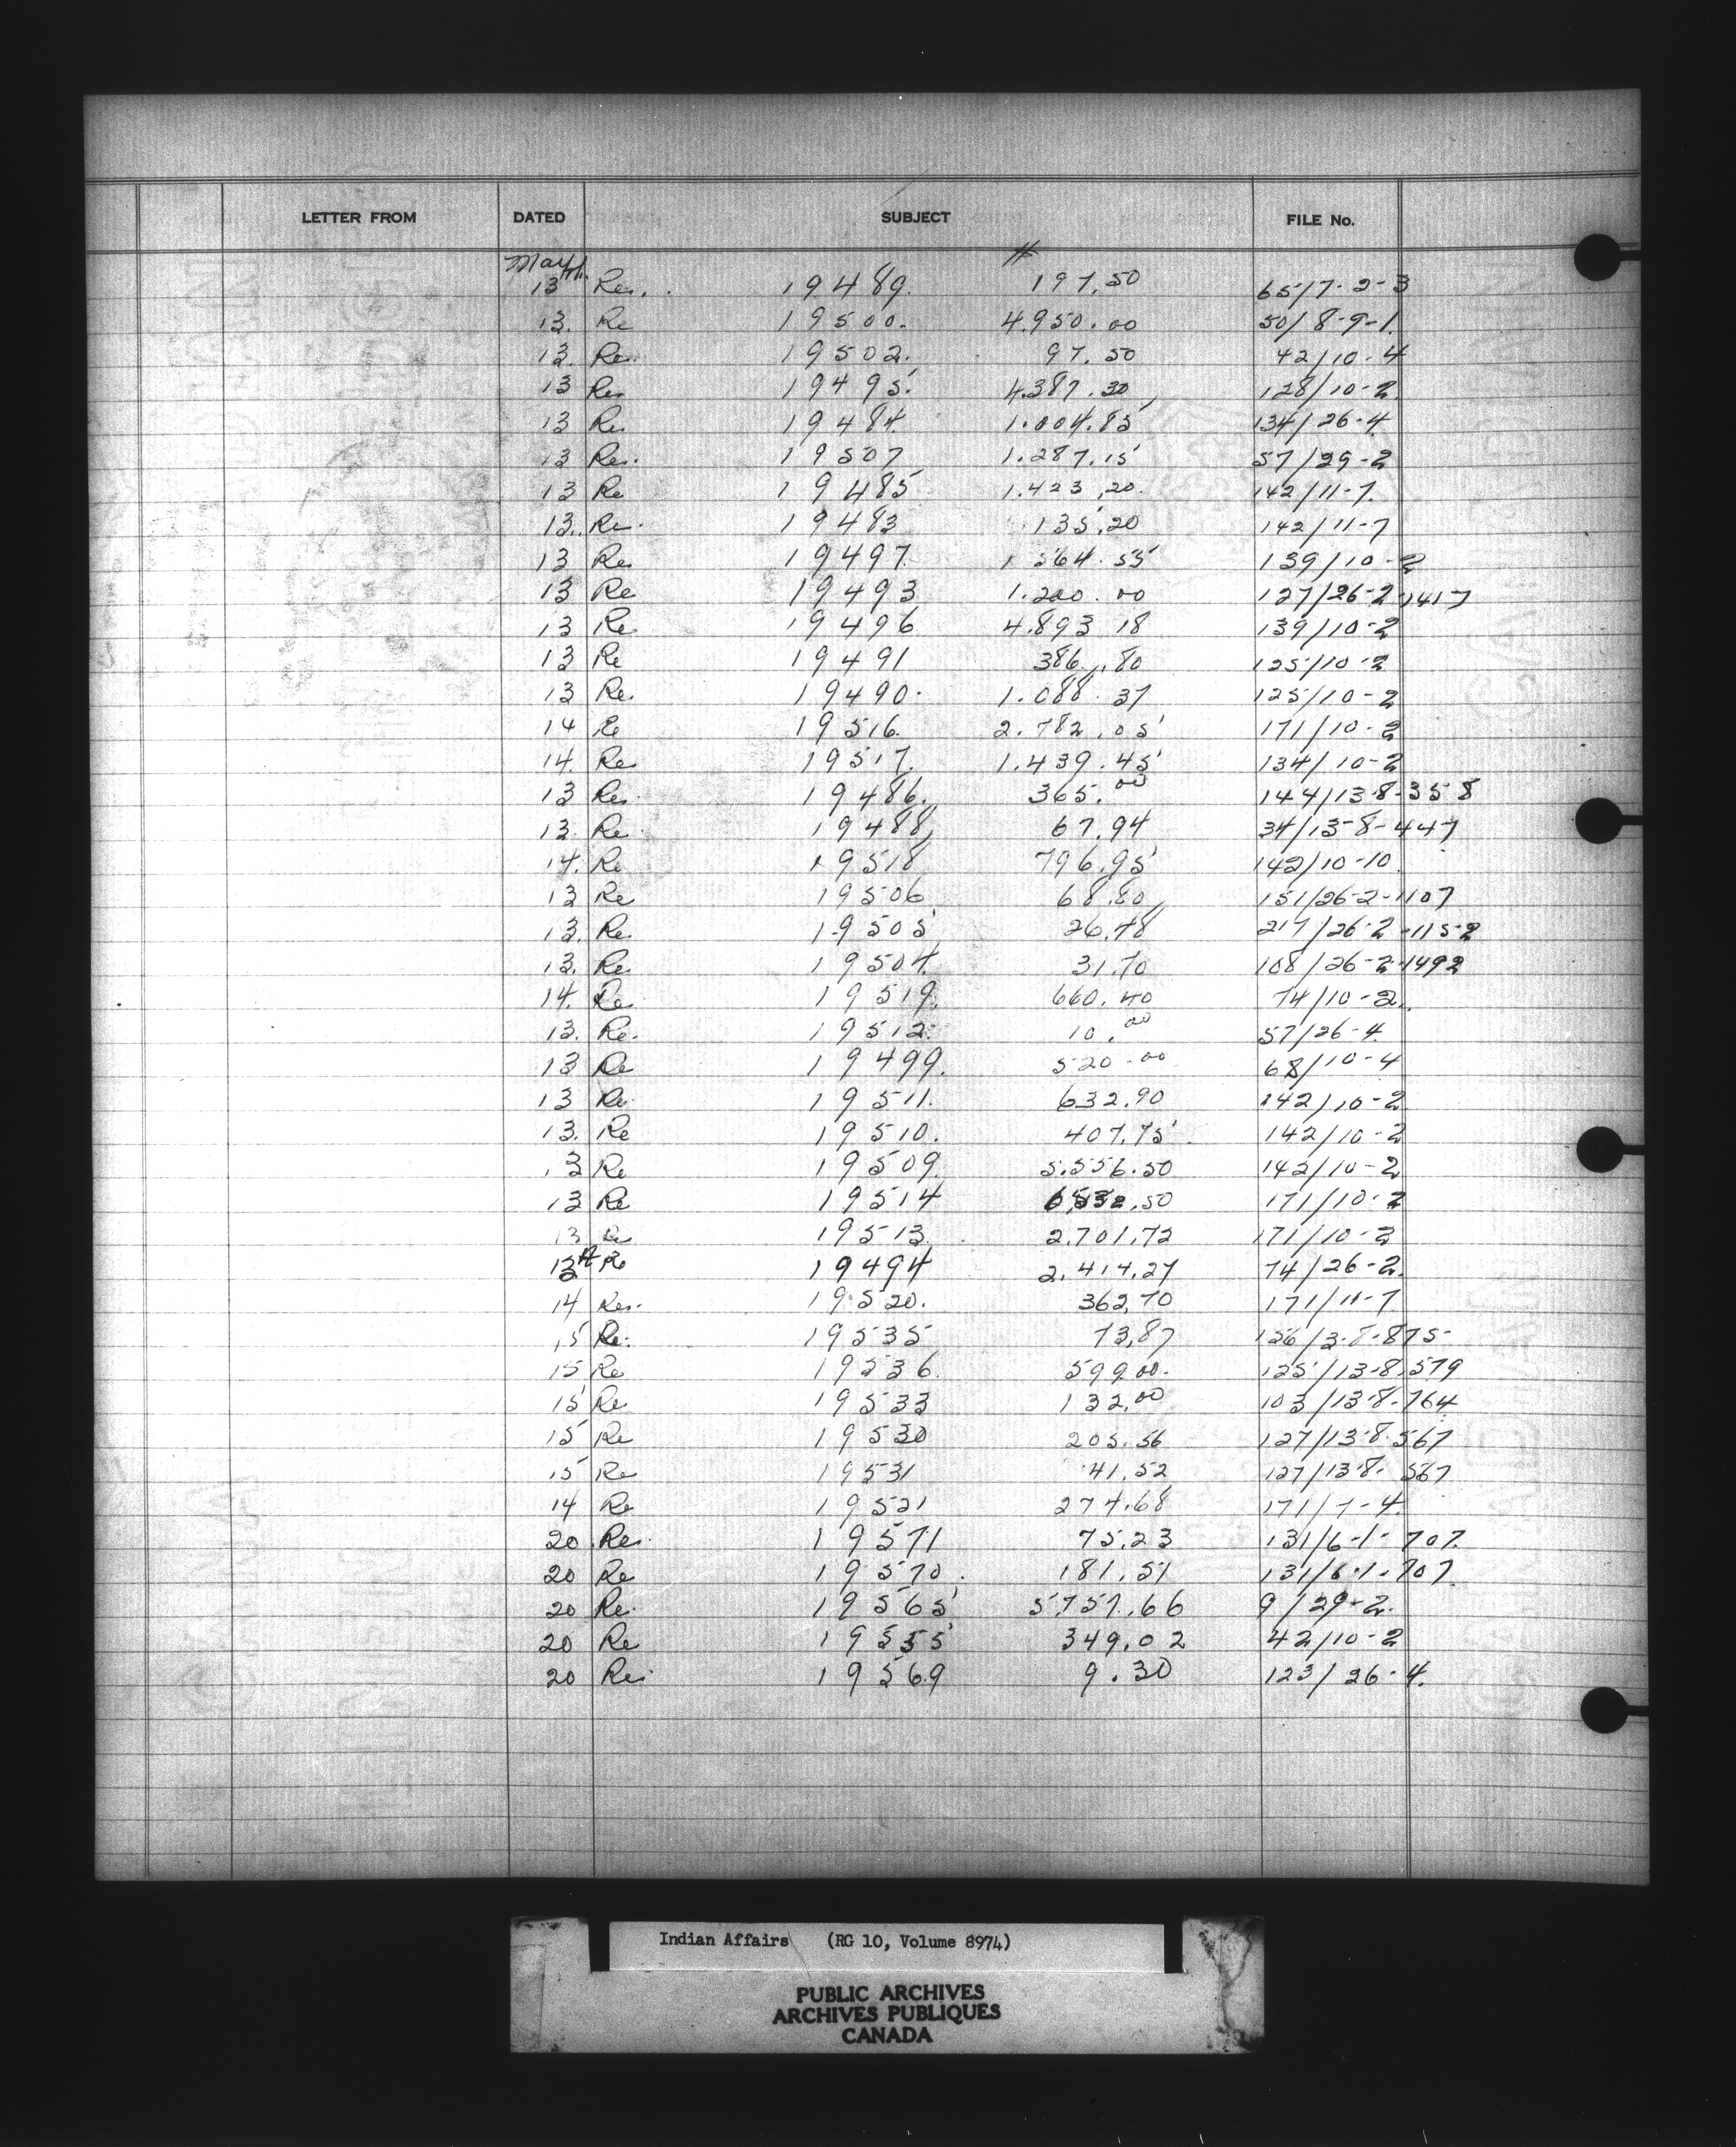 LETTER FROM DATED SUBJECT FILE No.
May #
13th Re. 19489. 197.50 65/7-2-3
13. Re 19500. 4.950.00 50/8-9-1.
13. Re. 19502. 97.50 42/10-4
13 Re 19495. 4.387.30 128/10-2
13 Re 19484. 1.004.85 134/26-4
13 Re. 19507 1.287.15 57/29-2
13 Re 19485 1.423.20. 142/11-7.
13. Re. 19483 135.20 142/11-7
13 Re 19497. 1 564.55 139/10-2
13 Re 19493 1.200.00 127/26-2-1417
13 Re 19496 4.893 18 139/10-2
13 Re 19491 386.80 125/10-2
13 Re. 19490. 1.088.37 125/10-2
14 Re 19516. 2.782.05 171/10-2
14. Re 19517. 1.439.45 134/10-2
13 Re. 19486. 365.00 144/13-8-358
13. Re. 19488 67.94 34/13-8-447
14. Re 19518 796.95 142/10-10.
13 Re 19506 68.80 151/26-2-1107
13. Re. 19505 26.48 217/26-2-1152
13. Re. 19504. 31.70 108/26-2-1492
14. Re 19519. 660.40 74/10-2.
13. Re. 19512. 10.00 57/26-4.
13 Re 19499. 520.00 68/10-4
13 Re. 19511. 632.90 142/10-2
13. Re 19510. 407.75 142/10-2
13 Re 19509 5.556.50 142/10-2
13 Re 19514 171/10-2
13 Re 19513. 2.701.72 171/10-2
13 Re 19494 2.414.27 74/26-2.
14 Re. 19520. 362.70 171/11-7
15 Re. 19535 73.87 126/3-8-875-
15 Re 19536. 599.00. 125/13-8-579
15 Re 19533 132.00 103/13-8-764
15 Re 19530 205.56 127/13-8-567
15 Re 19531 41.52 127/13-8-567
14 Re 19521 274.68 171/7-4.
20 Re. 19571 75.23 131/6-1-707.
20 Re 19570. 181.51 131/6-1-707.
20 Re. 19565 5.757.66 9/29-2.
20 Re 19555 349.02 42/10-2
20 Re. 19569 9.30 123/26-4.
Indian Affairs (RG 10, Volume 8974)
PUBLIC ARCHIVES
ARCHIVES PUBLIQUES
CANADA